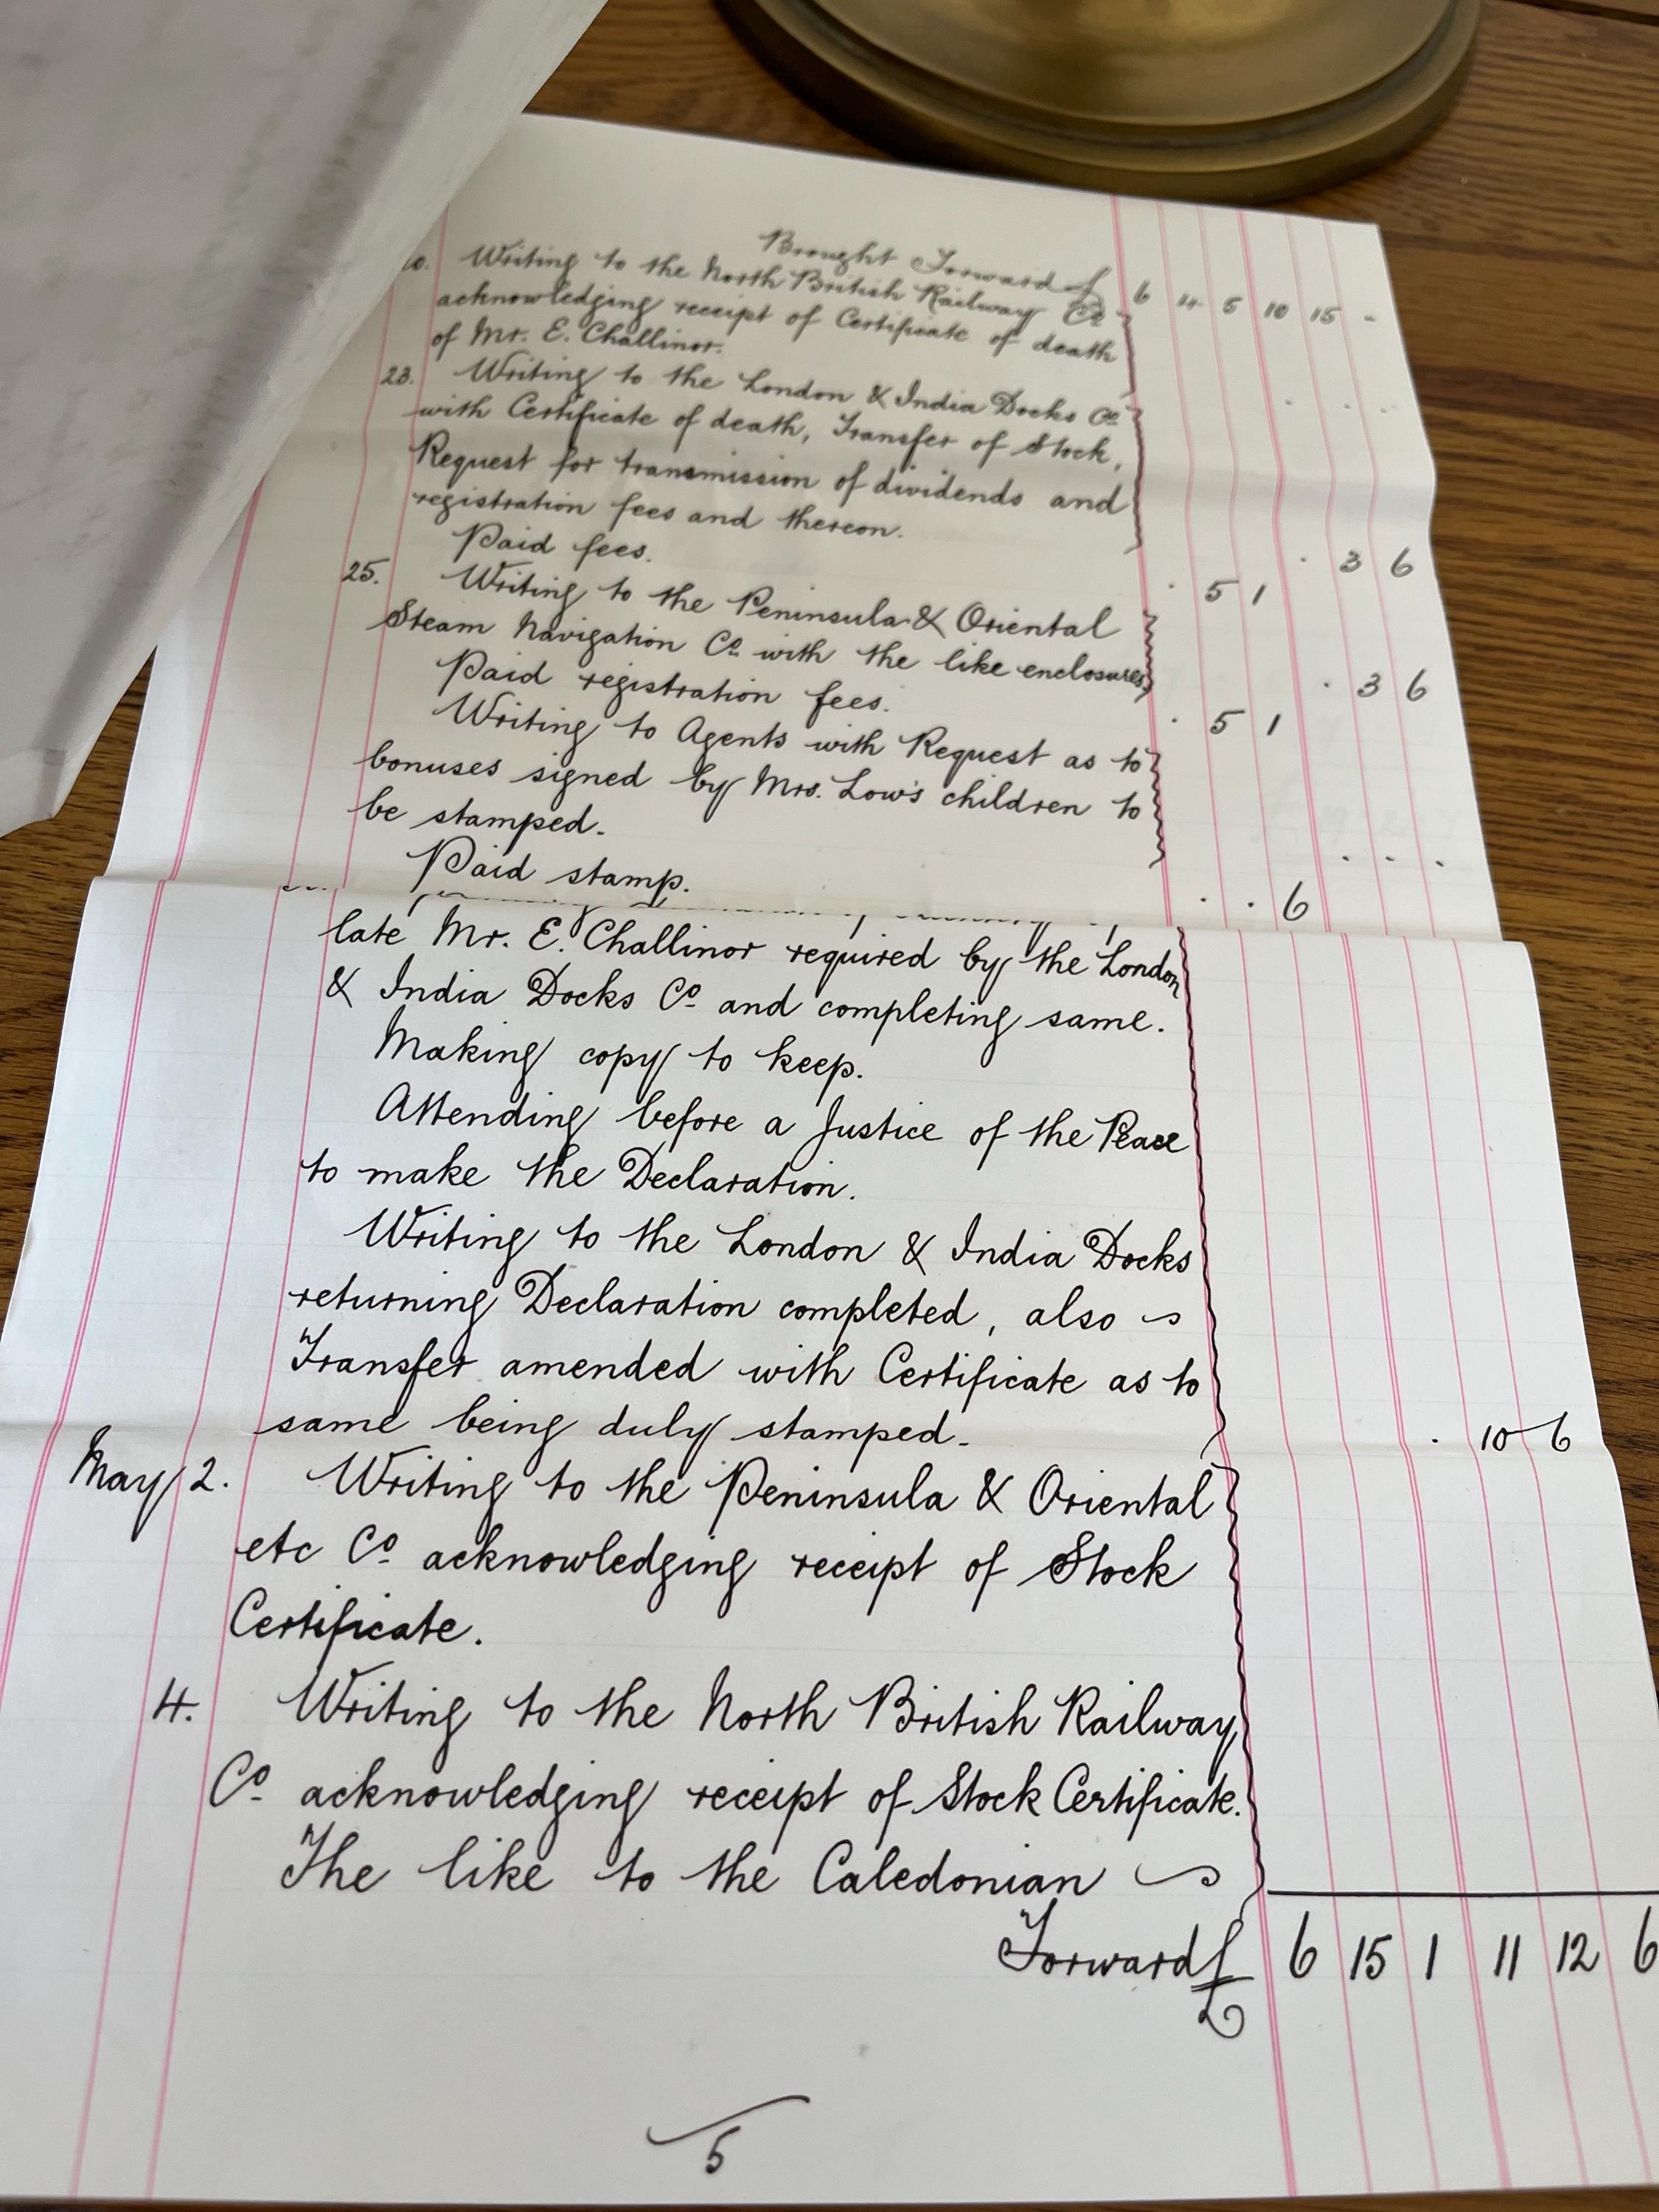 Brought Forward £ 6 14 5 10 15 -
Writing to the North British Railway Co
acknowledging receipt of Certificate of death
of Mr. E. Challinor.
23. Writing to the London & India Docks Co
with Certificate of death, Transfer of Stock,
Request for transmission of dividends and
registration fees and thereon. . 3 6
Paid fees. . 5 1
25. Writing to the Peninsula & Oriental
Steam Navigation Co with the like enclosures . 3 6
Paid registration fees. . 5 1
Writing to Agents with Request as to
bonuses signed by Mrs. Low's children to
be stamped. . . .
Paid stamp. . . 6
late Mr. E. Challinor required by the London
& India Docks Co and completing same.
Making copy to keep.
Attending before a Justice of the Peace
to make the Declaration.
Writing to the London & India Docks
returning Declaration completed, also
Transfer amended with Certificate as to
same being duly stamped. . 10 6
May 2. Writing to the Peninsula & Oriental
etc Co acknowledging receipt of Stock
Certificate.
4. Writing to the North British Railway
Co acknowledging receipt of Stock Certificate.
The like to the Caledonian
Forward £ 6 15 1 11 12 6
5